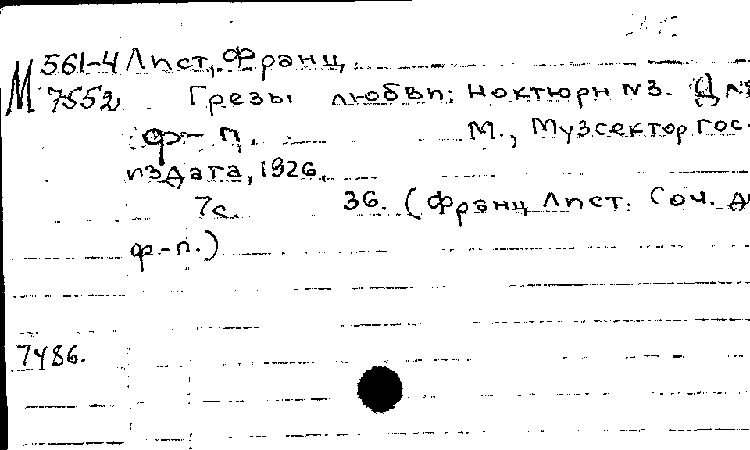 М 561-4 Лист, Франц,
7552 Грезы любви; Ноктюрн №3. Для
ф-п. М., Музсектор Гос.
издата, 1926.
7с. 36. (Франц Лист. Соч. д
ф-п.)
7486.